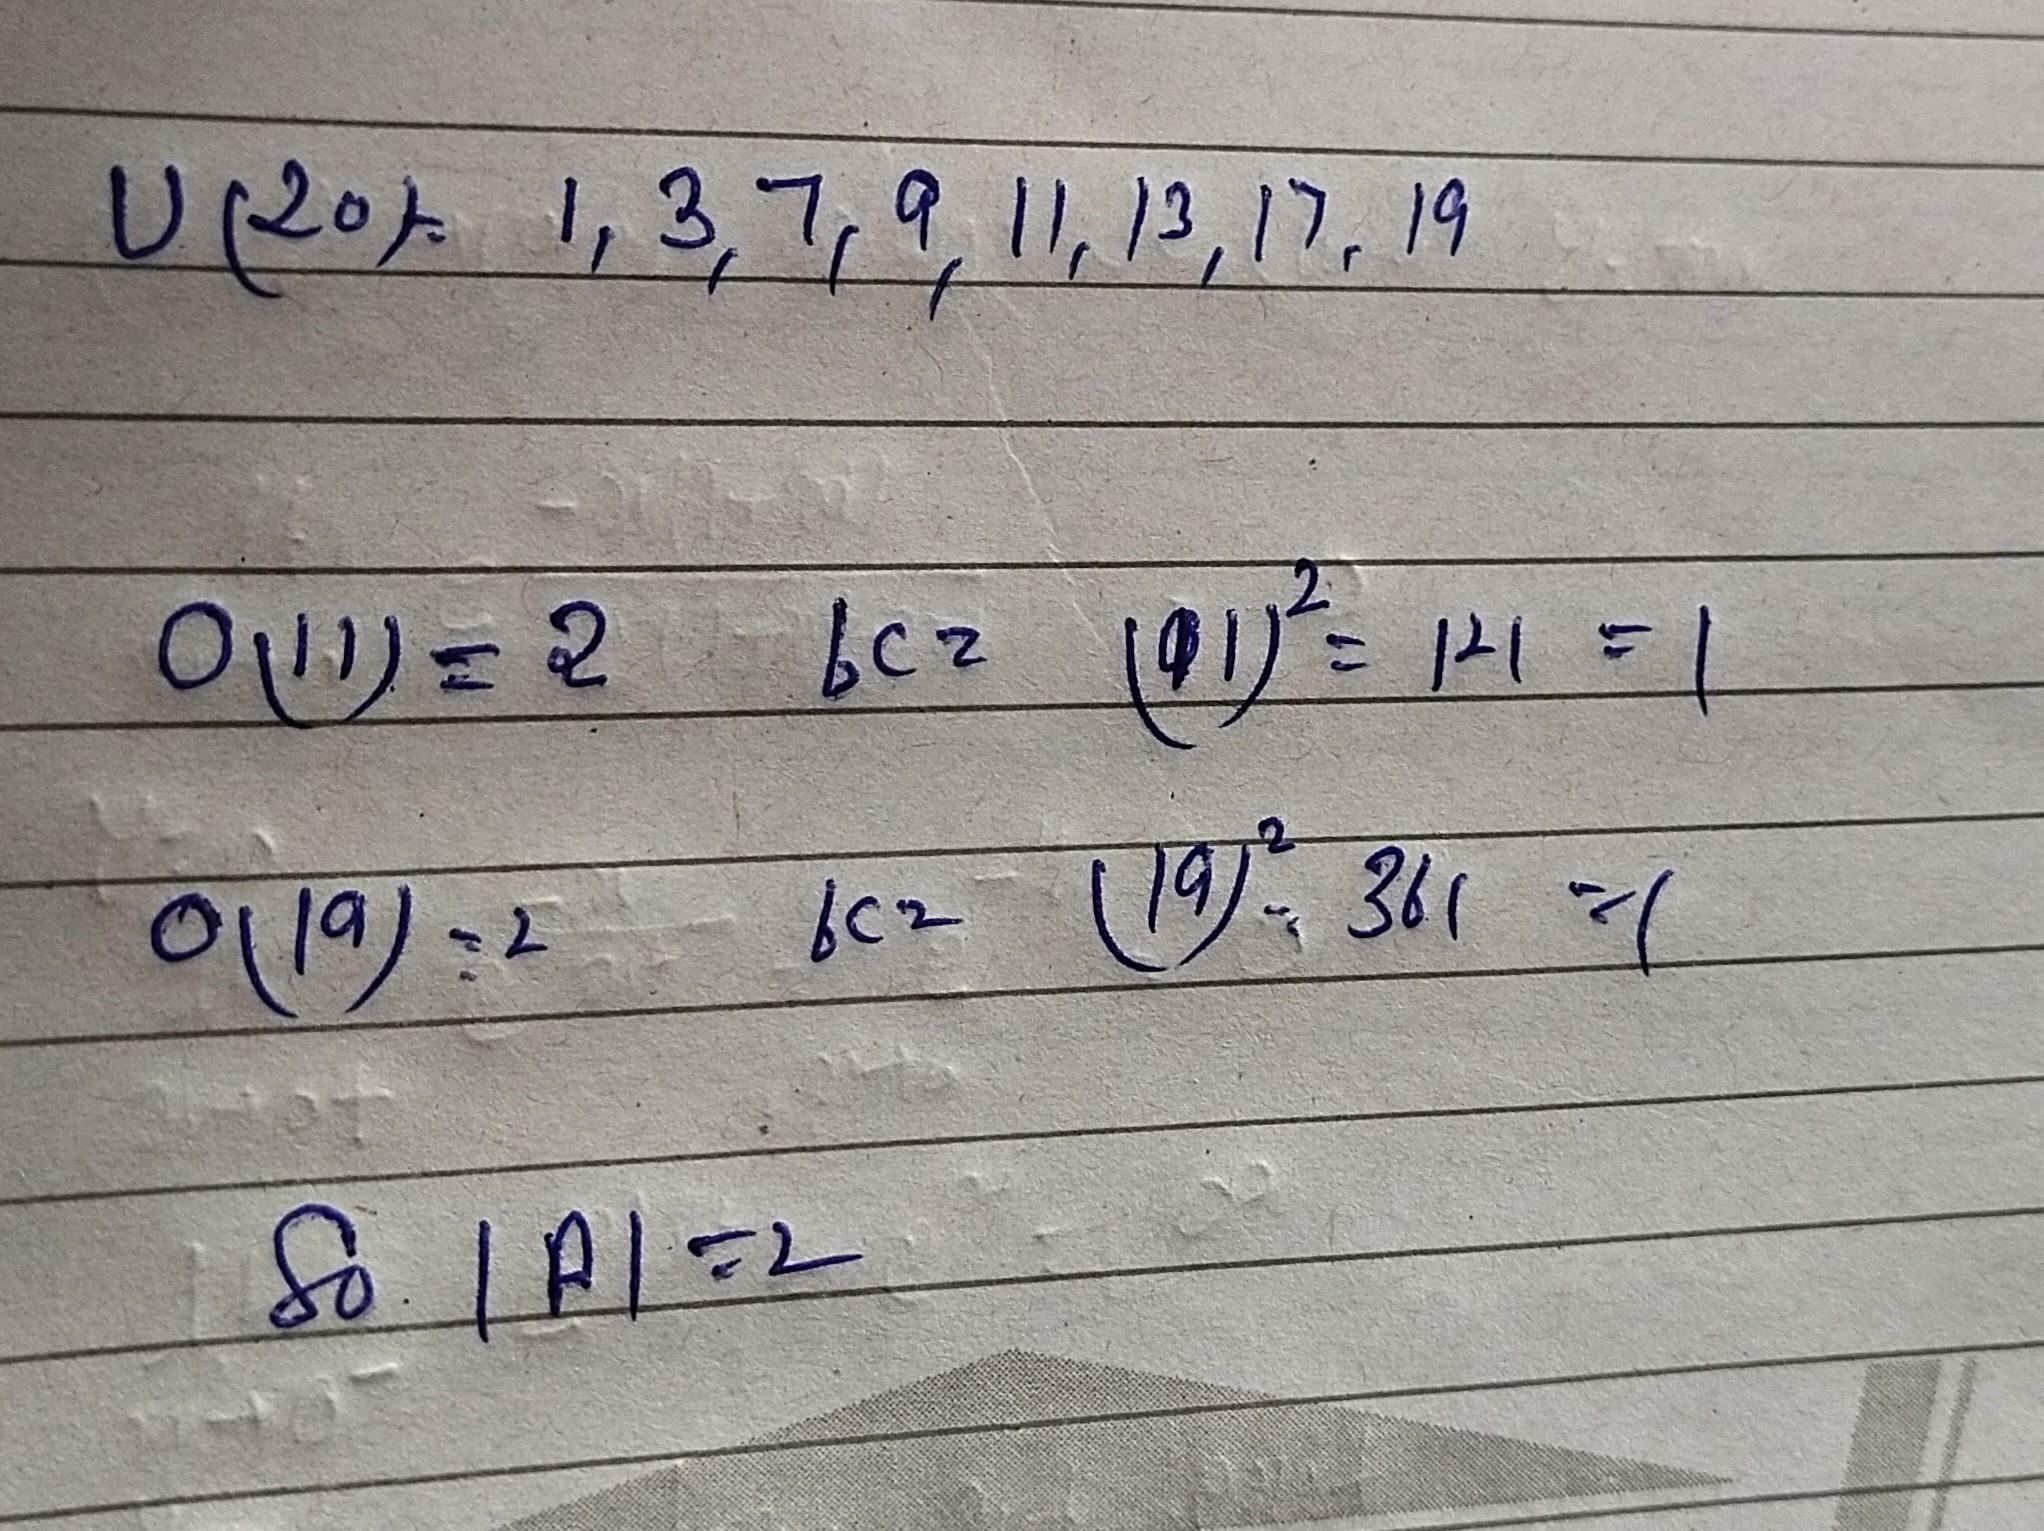 U(20)= 1, 3, 7, 9, 11, 13, 17, 19
O(11) = 2 bcz (11)² = 121 = 1
O(19) = 2 bcz (19)² = 361 = 1
So |A| = 2